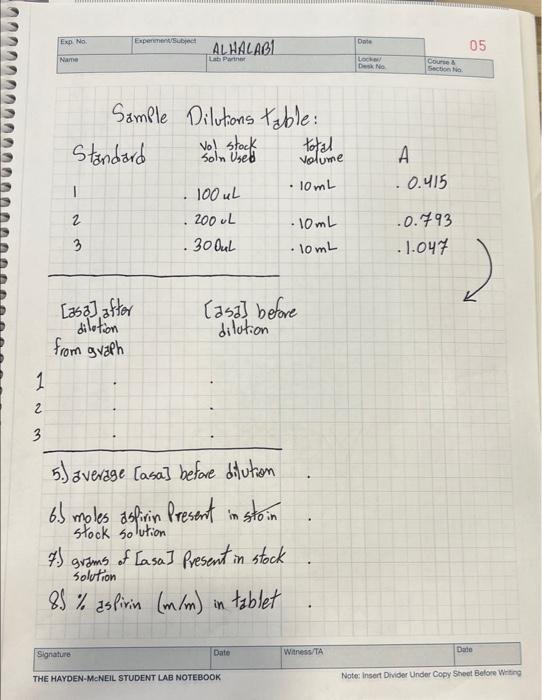 Exp. No.
Experiment/Subject
ALHALABI
Date
05
Name
Lab Partner
Locker/
Desk No.
Course &
Section No.
Sample Dilutions table:
Standard
Vol stock
soln Used
total
volume
A
1 . 100 uL . 10mL . 0.415
2 . 200 uL . 10mL . 0.793
3 . 300uL . 10mL . 1.047
[asa] after
dilution
from graph
[asa] before
dilution
1 . .
2 . .
3 . .
5.) average [asa] before dilution .
6.) moles aspirin Present in .
stock solution
7.) grams of [asa] Present in stock .
solution
8.) % aspirin (m/m) in tablet .
Signature
Date
Witness/TA
Date
THE HAYDEN-McNEIL STUDENT LAB NOTEBOOK
Note: Insert Divider Under Copy Sheet Before Writing